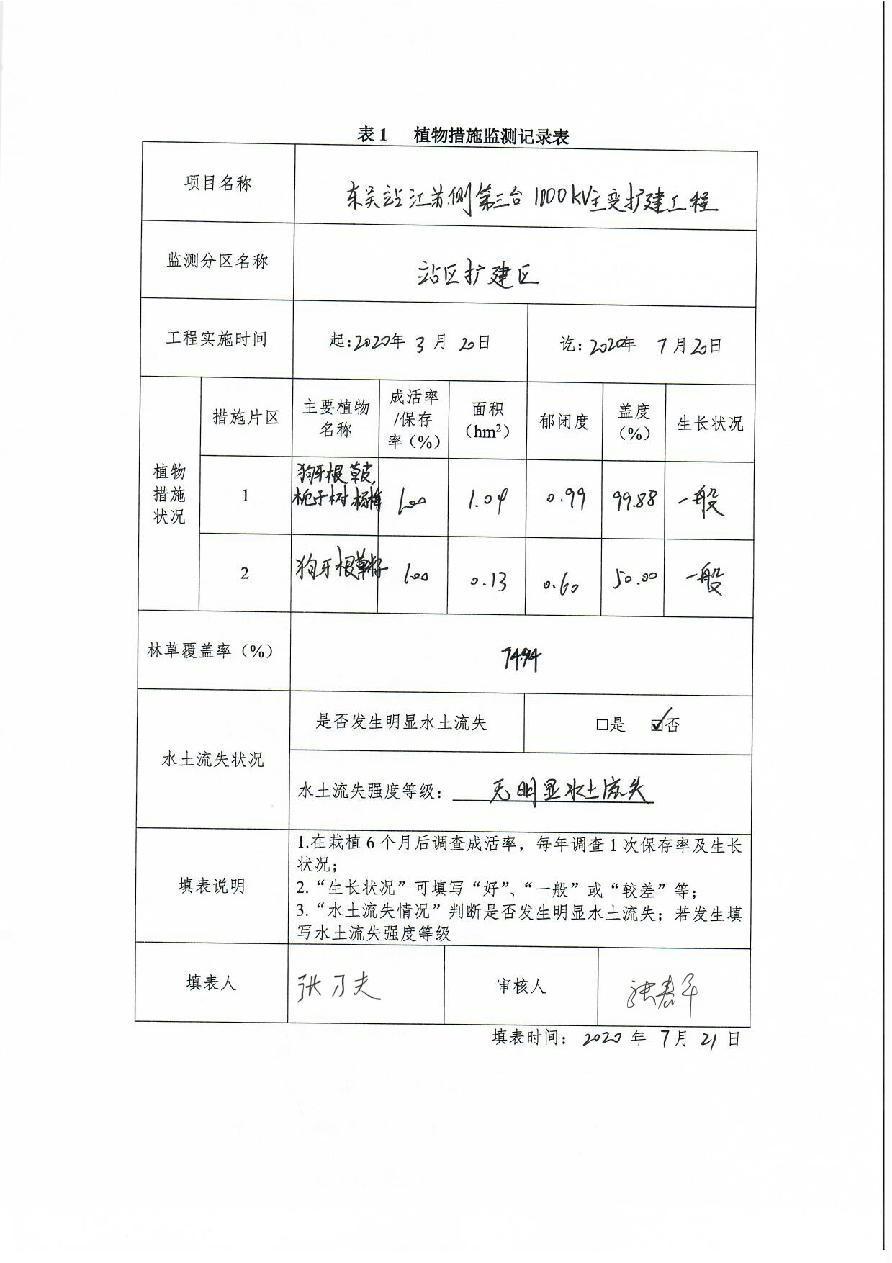 表1 植物措施监测记录表
项目名称 东吴站江苏侧第三台1000kV主变扩建工程
监测分区名称 站区扩建区
工程实施时间 起:2020年3月20日 讫:2020年7月20日
植物措施状况 措施片区 主要植物名称 成活率/保存率(%) 面积(hm²) 郁闭度 盖度(%) 生长状况
1 狗牙根草皮, 栀子树 100 1.04 0.99 99.88 一般
2 狗牙根草籽 100 0.13 0.60 50.00 一般
林草覆盖率(%) 74.94
水土流失状况 是否发生明显水土流失 □是 ☑否
水土流失强度等级: 无明显水土流失
填表说明
1.在栽植6个月后调查成活率,每年调查1次保存率及生长
状况;
2.“生长状况”可填写“好”、“一般”或“较差”等;
3.“水土流失情况”判断是否发生明显水土流失;若发生填
写水土流失强度等级
填表人 审核人
填表时间: 2020年7月21日